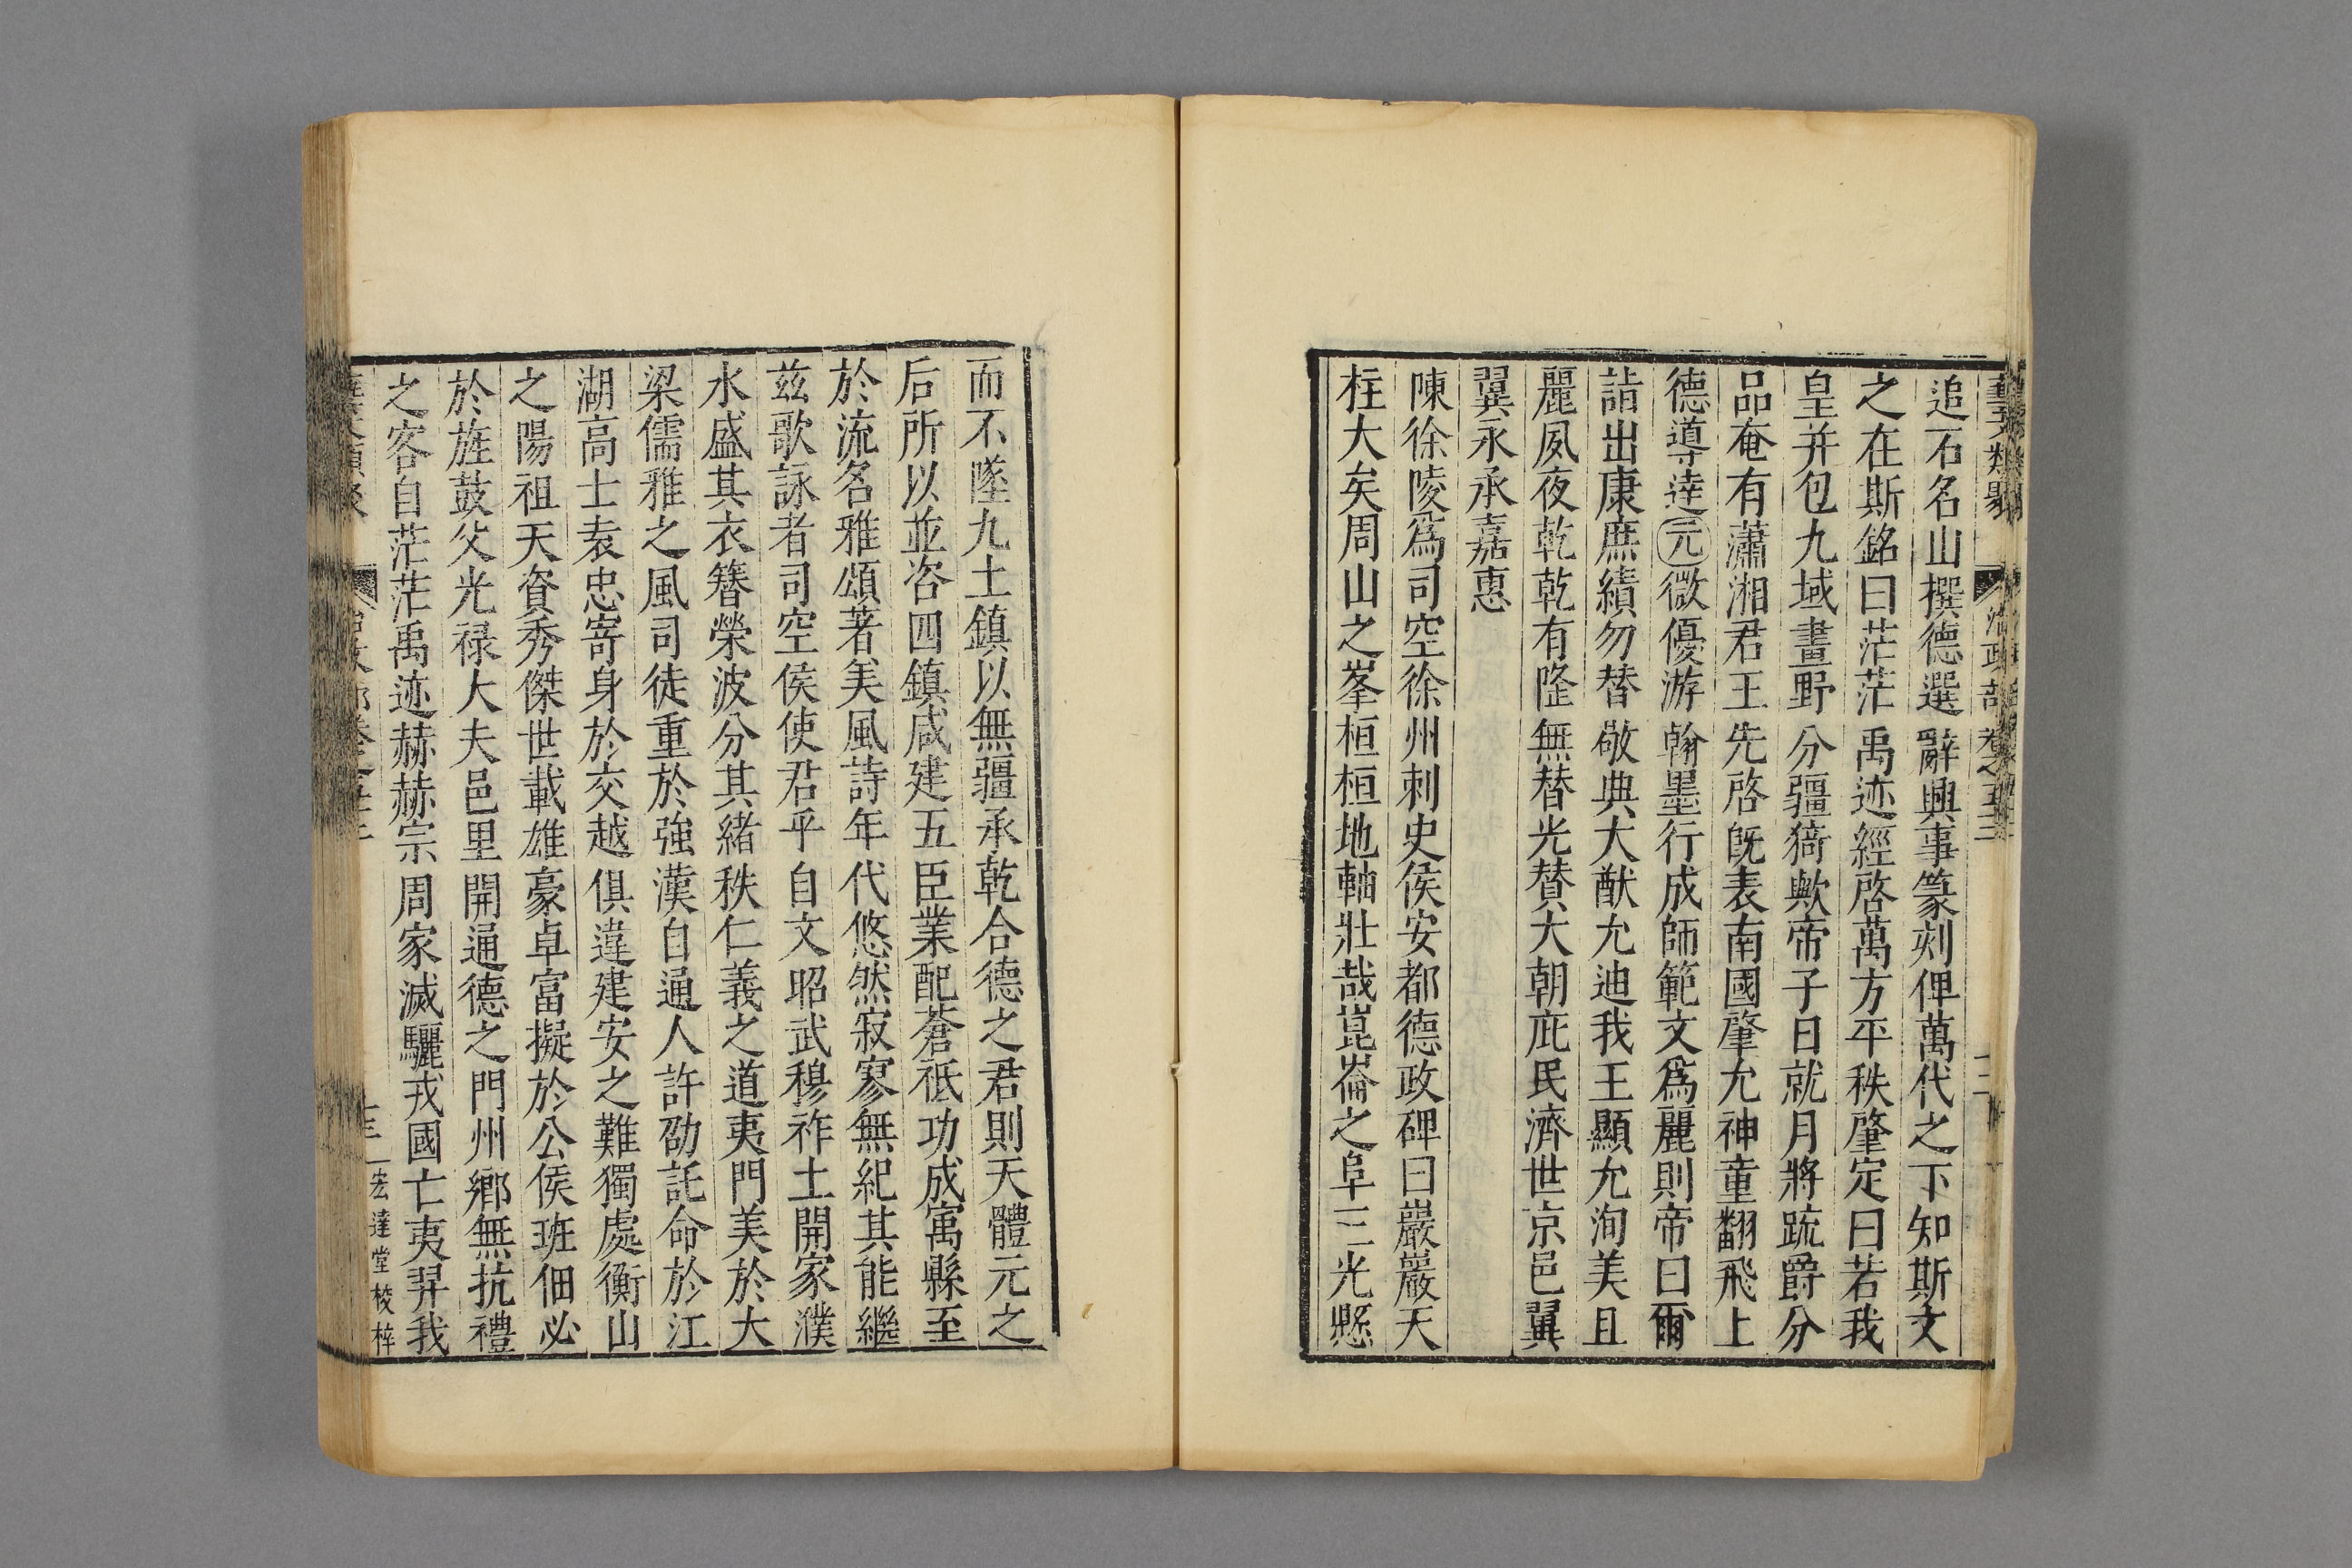 追石名山撰德選辭興事篆刻俾萬代之下知斯文
之在斯銘曰茫茫禹迹經啓萬方平秩肇定曰若我
皇并包九域畫野分疆猗歟帝子日就月將疏爵分
品奄有瀟湘君王先啓旣表南國肇允神童翻飛上
德導達元微優游翰墨行成師範文爲麗則帝曰爾
諧出康庶績勿替敬典大猷允迪我王顯允洵美且
麗夙夜乾乾有隆無替光贊大朝庇民濟世京邑翼
翼永承嘉惠
陳徐陵爲司空徐州刺史侯安都德政碑曰巖巖天
柱大矣周山之峯桓桓地軸壯哉崑崙之阜三光懸
而不墜九土鎮以無疆承乾合德之君則天體元之
后所以並咨四鎮咸建五臣業配蒼祇功成寓縣至
於流名雅頌著美風詩年代悠然寂寥無紀其能繼
茲歌詠者司空侯使君乎自文昭武穆祚土開家濮
水盛其衣簪榮波分其緒秩仁義之道夷門美於大
梁儒雅之風司徒重於強漢自通人許劭託命於江
湖高士袁忠寄身於交越俱違建安之難獨處衡山
之陽祖天資秀傑世載雄豪卓富擬於公侯班佃必
於旌鼓父光禄大夫邑里開通德之門州鄉無抗禮
之客自茫茫禹迹赫赫宗周家滅驪戎國亡夷羿我
宏達堂校梓